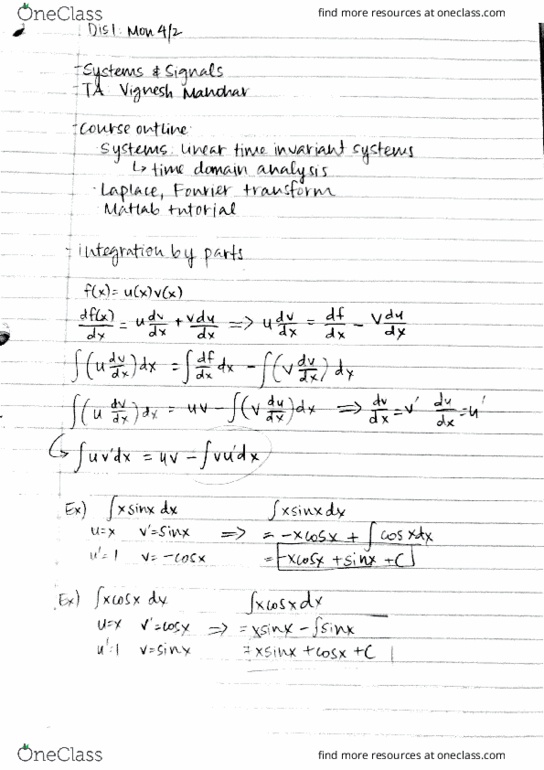 OneClass find more resources at oneclass.com
Dis1: Mon 4/2
- Systems & Signals
- TA Vignesh Manohar
- Course outline:
Systems: linear time invariant systems
↳ time domain analysis
· Laplace, Fourier transform
· Matlab tutorial
- integration by parts
f(x) = u(x)v(x)
df(x)/dx = u dv/dx + v du/dx => u dv/dx = df/dx - v du/dx
∫(u dv/dx)dx = ∫ df/dx dx - ∫(v dv/dx) dx
∫(u dv/dx)dx = uv - ∫(v du/dx)dx => dv/dx = v' du/dx = u'
↳ ∫uv'dx = uv - ∫vu'dx
Ex) ∫x sinx dx ∫x sinx dx
u=x v'=sinx => = -xcosx + ∫cosxdx
u'=1 v=-cosx = -xcosx + sinx + C
Ex) ∫xcosx dx ∫xcosx dx
u=x v'=cosx => = xsinx - ∫sinx
u'=1 v=sinx = xsinx + cosx + C
OneClass find more resources at oneclass.com